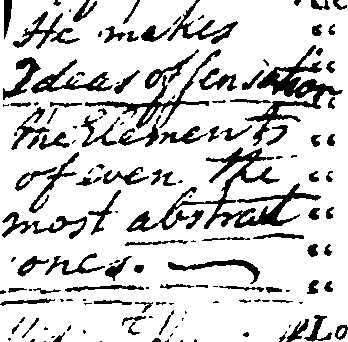 He makes “
Ideas of Sensation “
the Elements “
of even the “
most abstract “
ones. — “